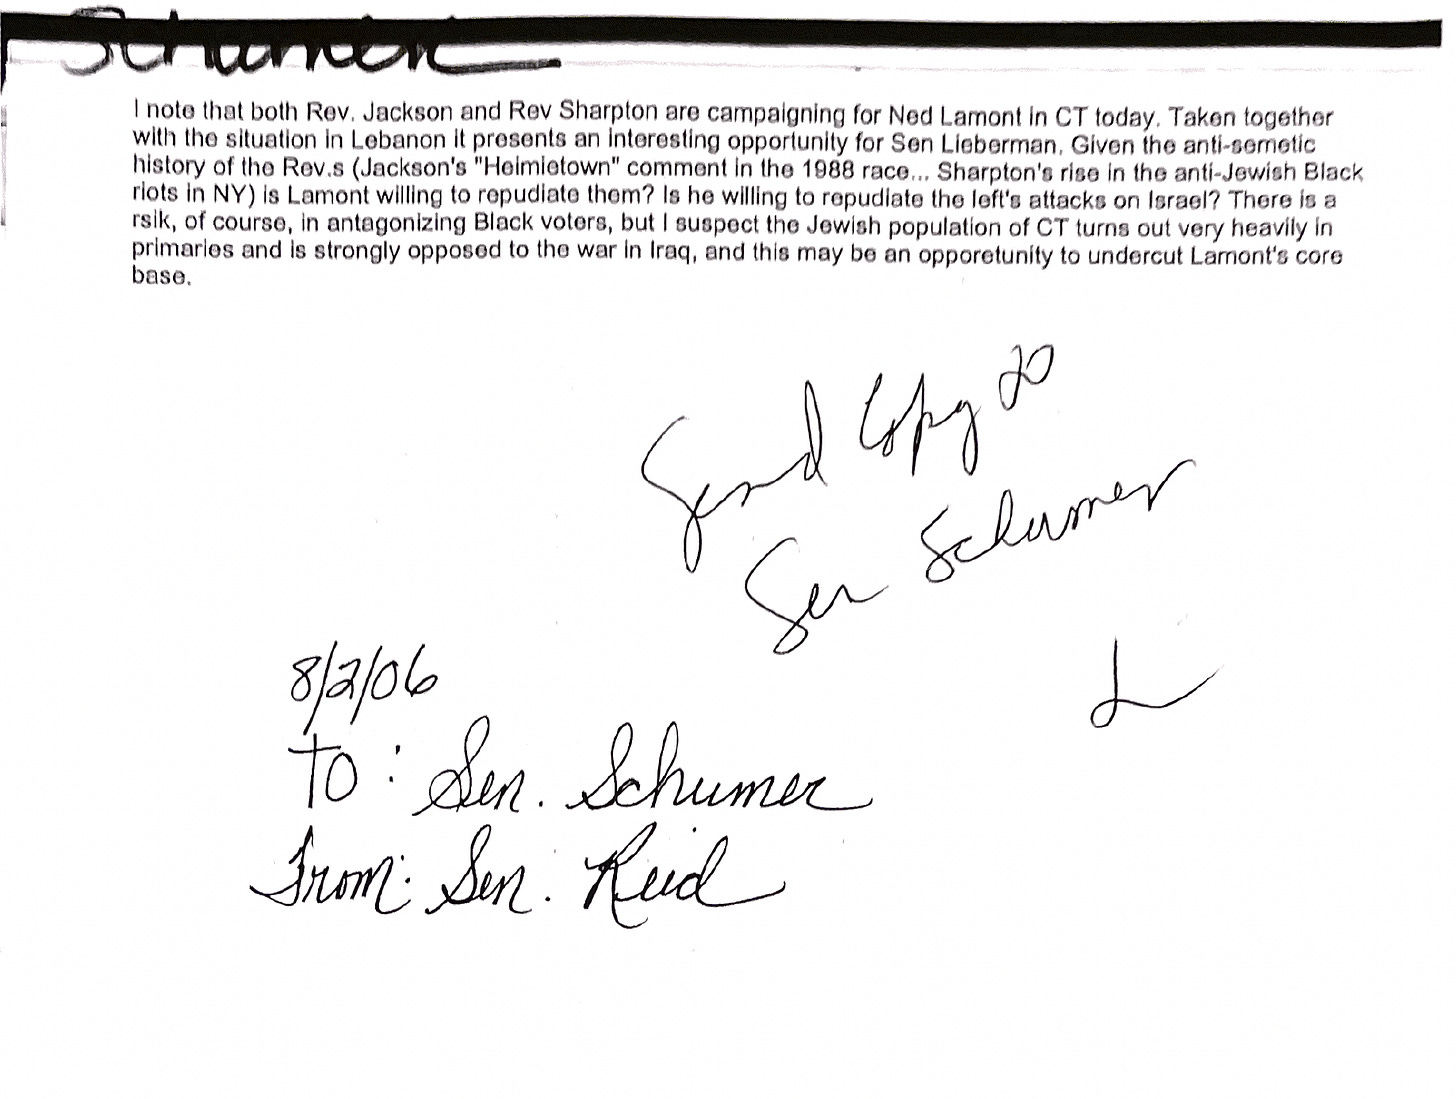 Schumer
I note that both Rev. Jackson and Rev Sharpton are campaigning for Ned Lamont in CT today. Taken together
with the situation in Lebanon it presents an interesting opportunity for Sen Lieberman. Given the anti-semetic
history of the Rev.s (Jackson's "Heimietown" comment in the 1988 race... Sharpton's rise in the anti-Jewish Black
riots in NY) is Lamont willing to repudiate them? Is he willing to repudiate the left's attacks on Israel? There is a
rsik, of course, in antagonizing Black voters, but I suspect the Jewish population of CT turns out very heavily in
primaries and is strongly opposed to the war in Iraq, and this may be an opporetunity to undercut Lamont's core
base.
Send Copy to
Sen Schumer
8/2/06
To: Sen. Schumer
From: Sen. Reid